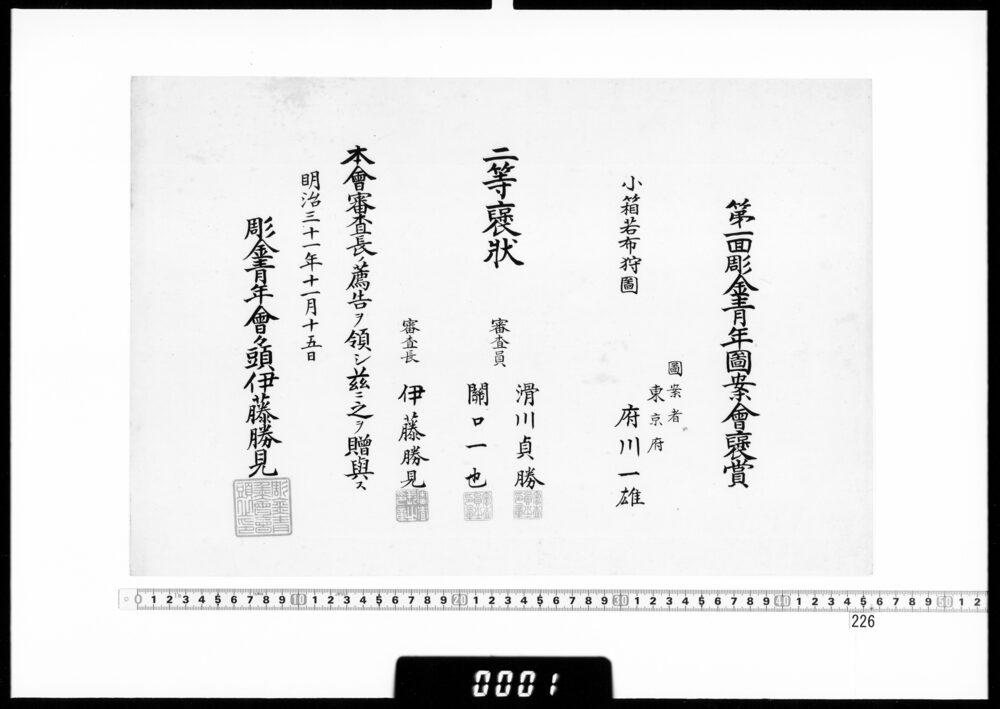 第一回彫金青年圖案會褒賞
小箱若布狩圖
圖案者
東京府
府川一雄
二等褒狀
審査員
滑川貞勝
關口一也
審査長
伊藤勝見
本會審査長ノ薦告ヲ領シ茲ニ之ヲ贈與ス
明治三十一年十一月十五日
彫金青年會々頭伊藤勝見
彫金青年會頭之印
0 1 2 3 4 5 6 7 8 9 10 1 2 3 4 5 6 7 8 9 20 1 2 3 4 5 6 7 8 9 30 1 2 3 4 5 6 7 8 9 40 1 2 3 4 5 6 7 8 9 50 1 2
226
0001